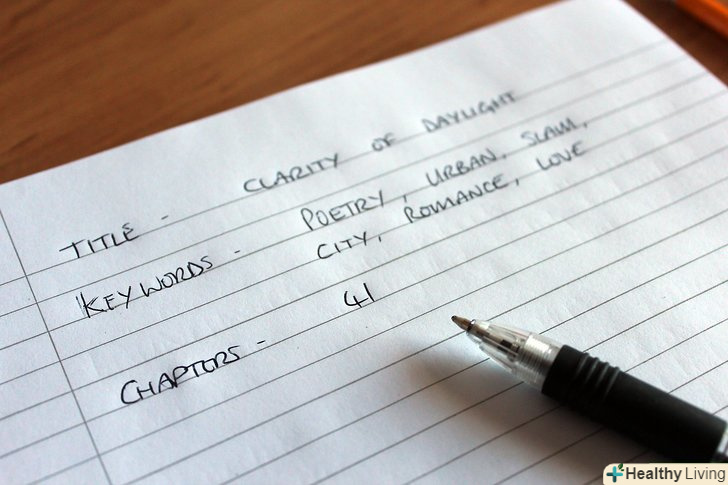 TITLE - CLARITY OF DAYLIGHT
KEYWORDS - POETRY, URBAN, SLAM,
CITY, ROMANCE, LOVE
CHAPTORS - 41
Healthy Living